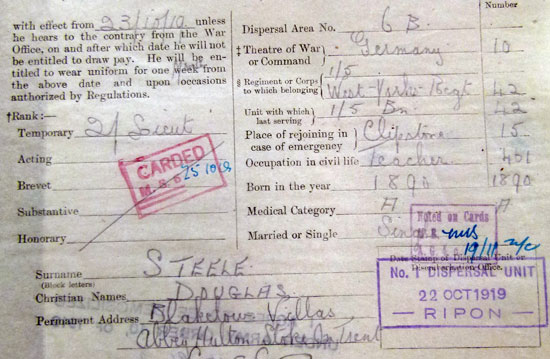 with effect from 23/10/19 unless
he hears to the contrary from the War
Office, on and after which date he will not
be entitled to draw pay. He will be en-
titled to wear uniform for one week from
the above date and upon occasions
authorized by Regulations.
†Rank:—
Temporary 2/ Lieut
Acting
Brevet
Substantive
Honorary
CARDED
M.S.
25 10 19
Number
Dispersal Area No. 6 B
‡ Theatre of War or Command Germany 10
1/5
§ Regiment or Corps to which belonging West Yorks Regt 42
Unit with which last serving 1/5 Bn 42
Place of rejoining in case of emergency Clipstone 15
Occupation in civil life Teacher 401
Born in the year 1890 1890
Medical Category A A
Married or Single Single
Noted on Cards
Date Stamp of Dispersal Unit or
Office.
No. 1 DISPERSAL UNIT
22 OCT 1919
— RIPON —
Surname STEELE
(Block letters)
Christian Names DOUGLAS
Permanent Address Blakelow Villas
Abbey Hulton Stoke On Trent